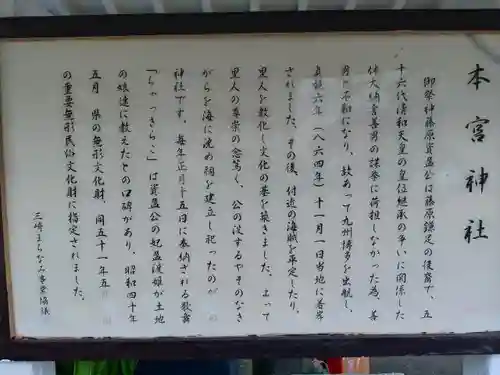 本宮神社
御祭神藤原資盈公は藤原鎌足の後裔で、五
十六代清和天皇の皇位継承の争いに関係した
伴大納言善男の謀挙に荷担しなかった為、善
男と不和になり、故あって九州博多を出航し、
貞観六年(八六四年)十一月一日当地に着岸
されました。その後、付近の海賊を平定したり、
里人を教化し文化の基を築きました。よって
里人の尊崇の念篤く、公の没するやそのなき
がらを海に沈め祠を建立し祀ったのが
神社です。毎年正月十五日に奉納される歌舞
「ちゃっきらこ」は資盈公の妃盈渡姫が土地
の娘達に教えたとの口碑があり、昭和四十年
五月 県の無形文化財、同五十一年五
の重要無形民俗文化財に指定されました。
三崎まちなみ事業協議